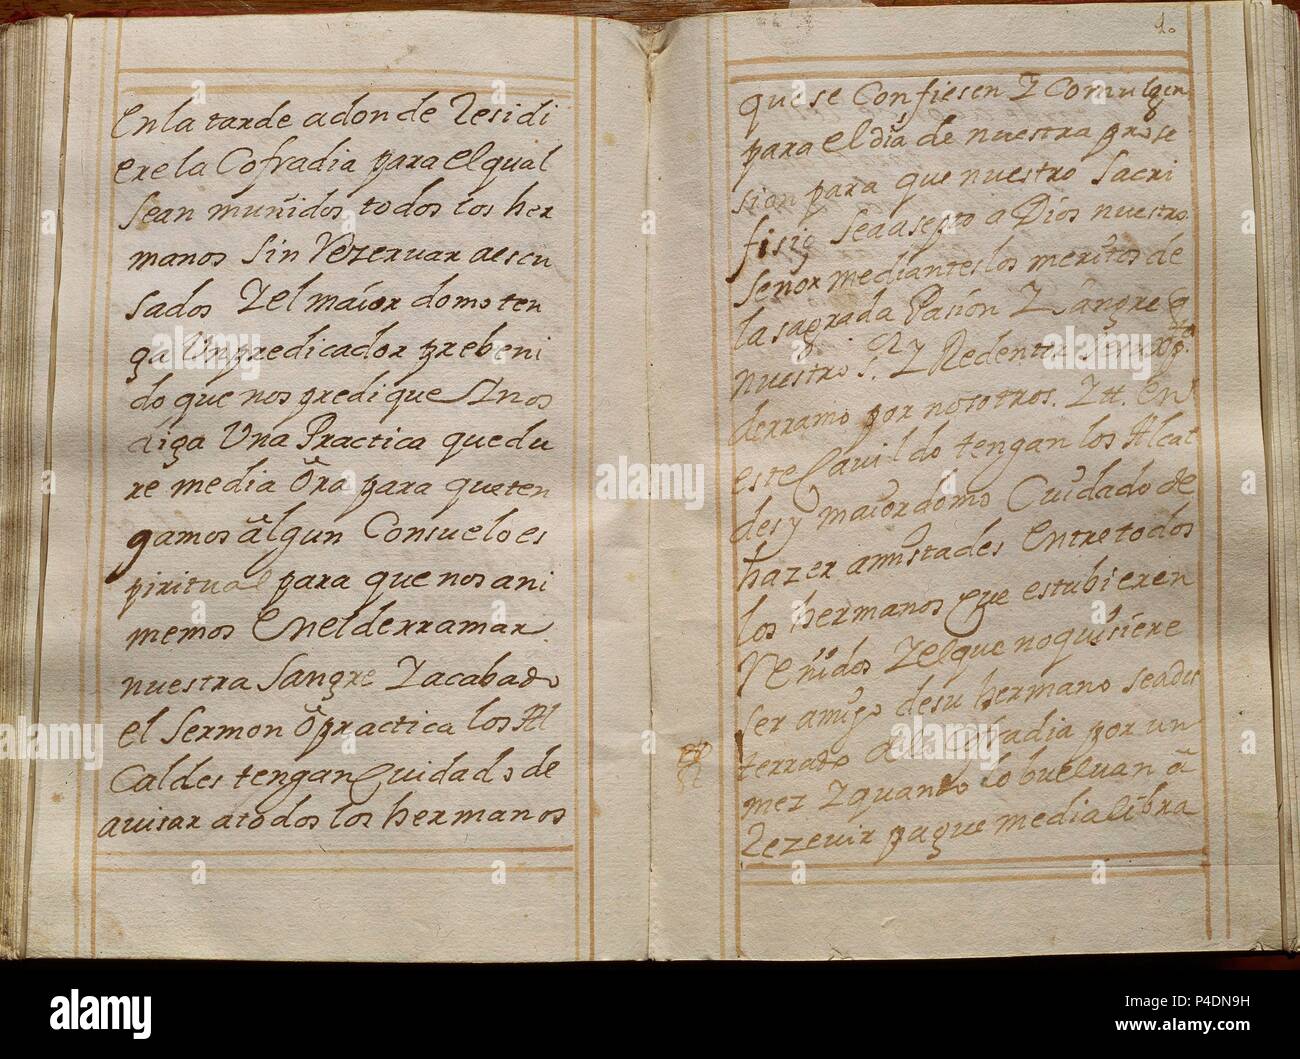 En la tarde adon de Residi
ere la Cofradia para el qual
Sean muñidos todos los her
manos Sin Rezeruar aescu
sados Y el maior domo ten
ga Un predicador prebeni
do que nos predique Y nos
diga Una Practica que du
re media Ora para que ten
gamos algun Consuelo es
piritual para que nos ani
memos En el derramar
nuestra Sangre Y acabado
el Sermon O practica los Al
Caldes tengan Cuidado de
auisar a todos los hermanos
10
que se Confiesen Y Comulgen
para el dia de nuestra prose
sion para que nuestro Sacri
fisio Sea asepto a Dios nuestro
Señor mediantes los meritos de
la sagrada Pasion Y Sangre q
nuestro S. Y Redentor
derramo por nosotros. Ytt. En
este Cauildo tengan los Alcal
des y maiordomo Cuidado de
hazer amistades Entre todos
los hermanos que estubieren
Reñidos Y el que no quisiere
ser amigo de su hermano sea des
terrado de la Cofradia por un
mez Y quando lo buelvan a
Rezeuir pague media libra
alamy
www.alamy.com
Image ID: P4DN9H